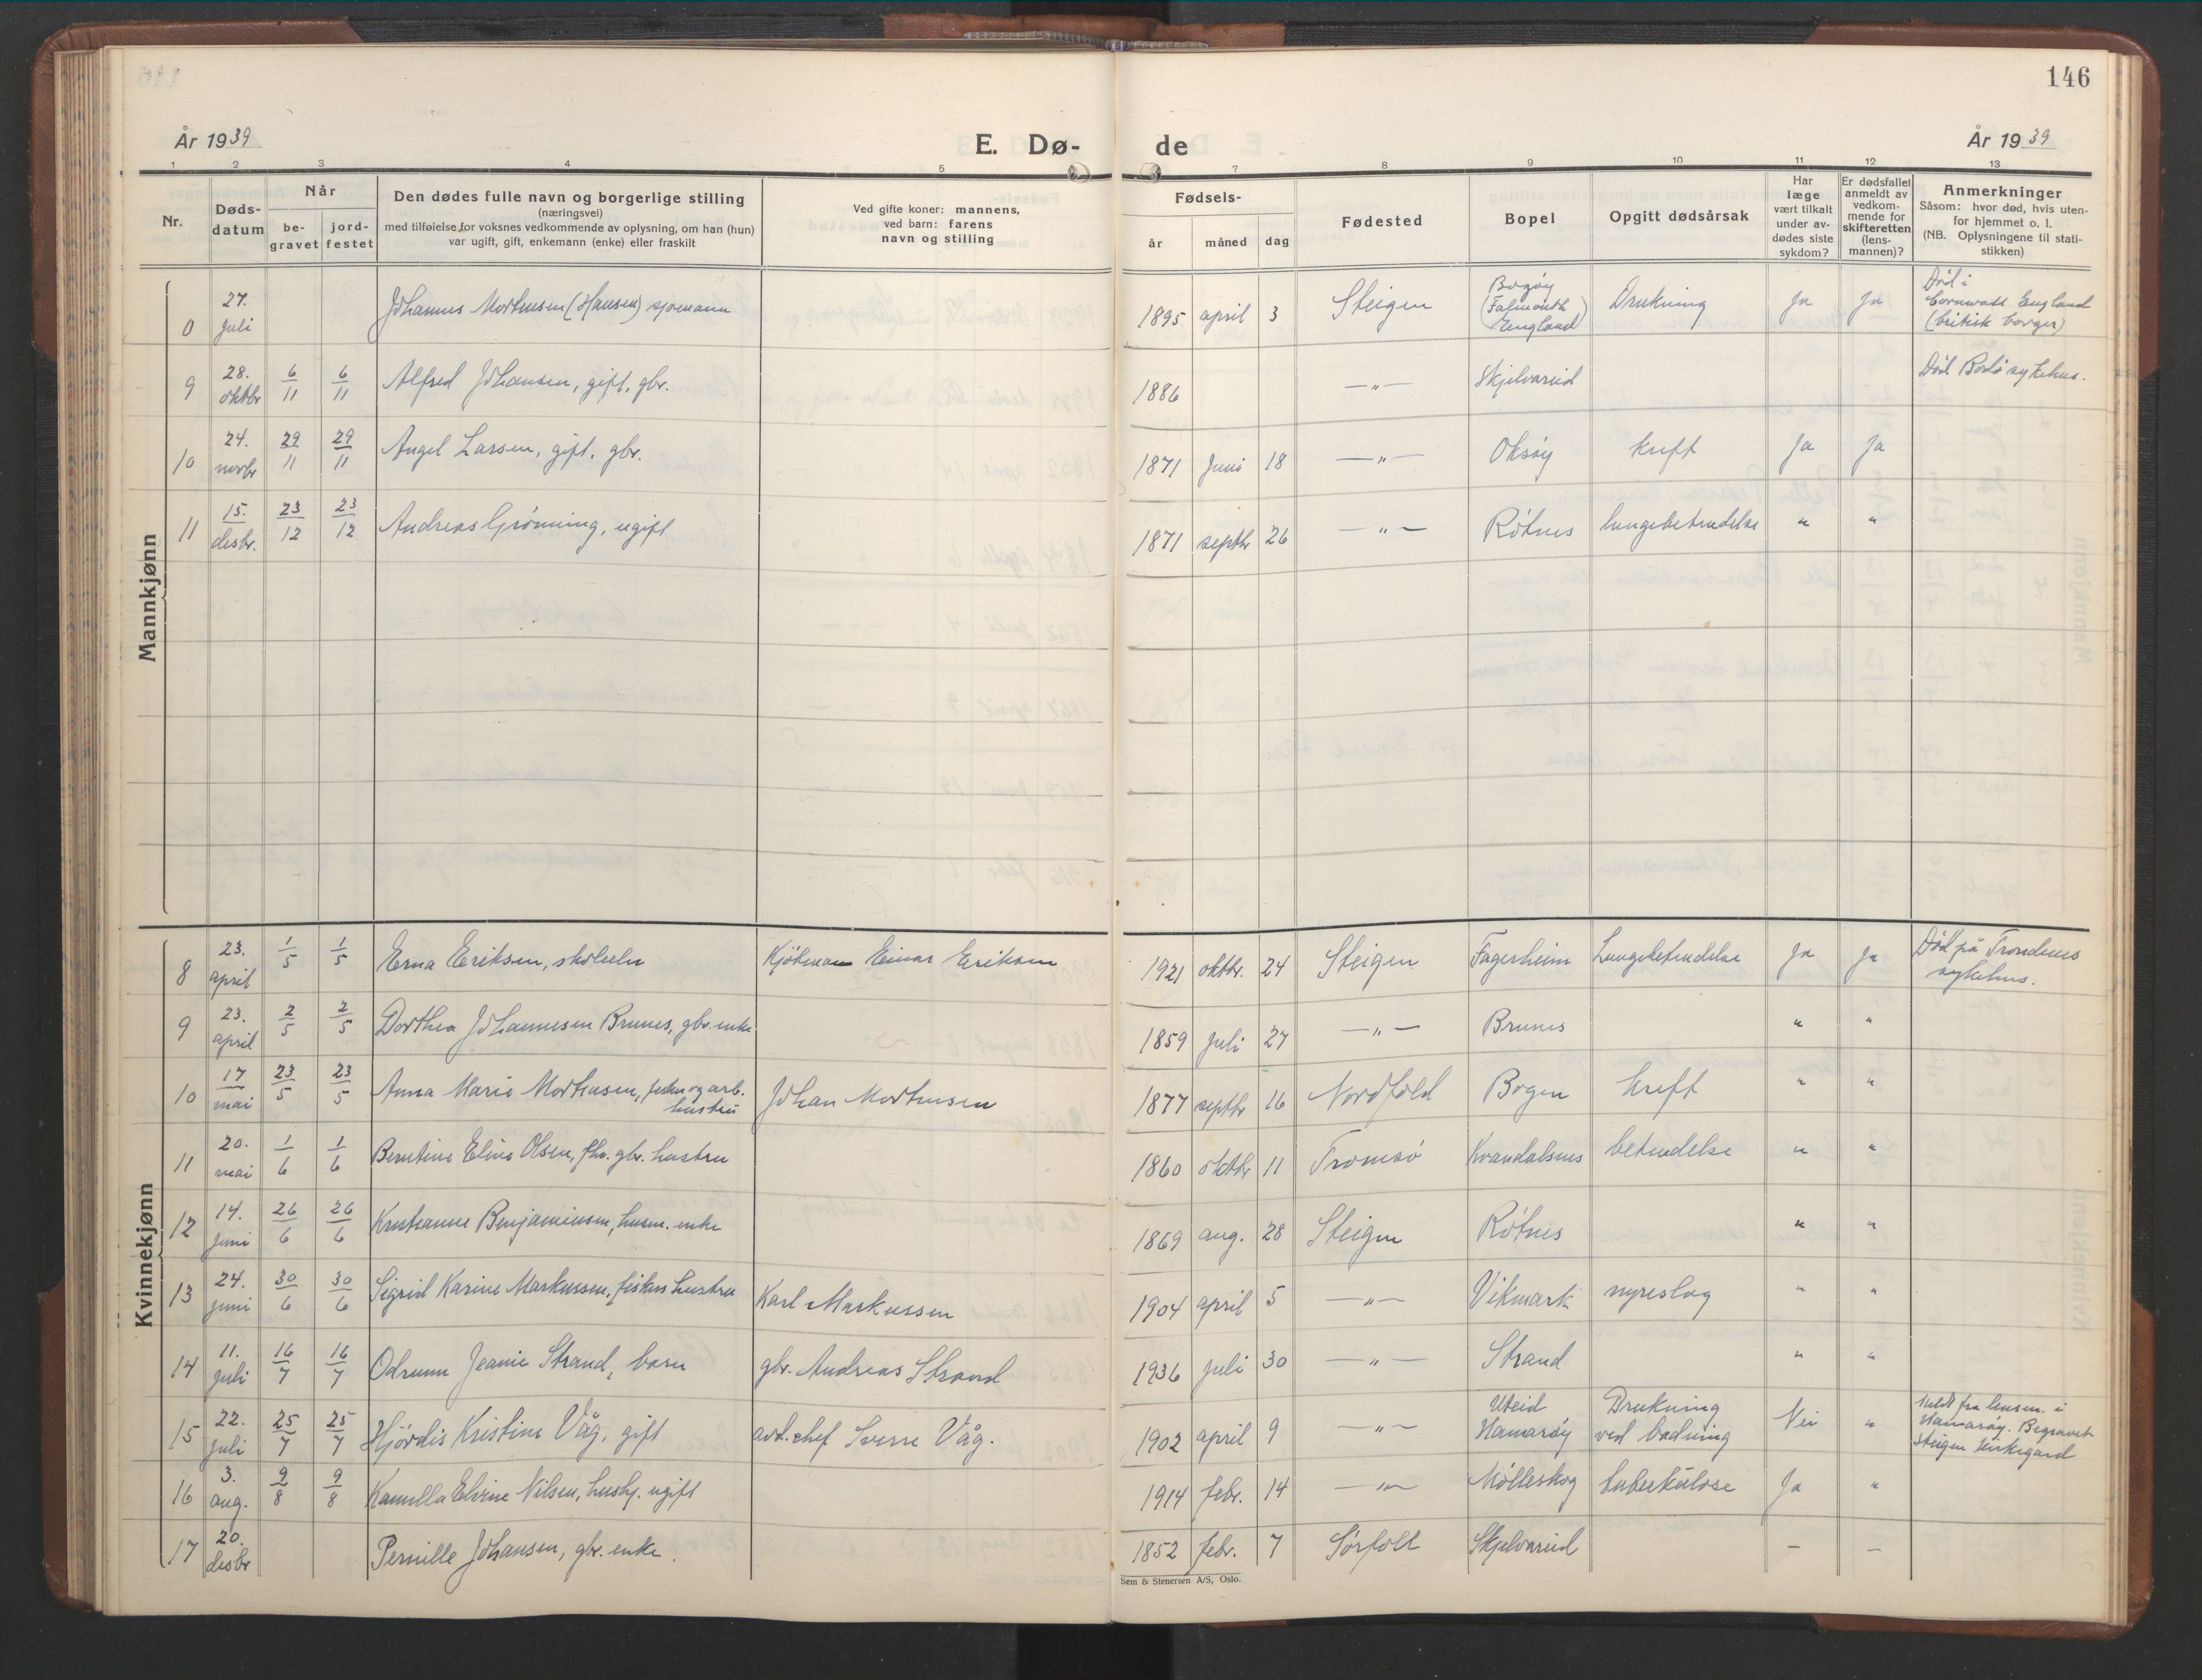 146
År 1939
E. Dø-
de
År 1939
1 2 3 4 5 7 8 9 10 11 12 13
Nr.
Døds-
datum
Når
be-
gravet
jord-
festet
Den dødes fulle navn og borgerlige stilling
(næringsvei)
med tilføielse for voksnes vedkommende av oplysning, om han (hun)
var ugift, gift, enkemann (enke) eller fraskilt
Ved gifte koner: mannens,
ved barn: farens
navn og stilling
Fødsels-
år måned dag
Fødested
Bopel
Opgitt dødsårsak
Har
læge
vært tilkalt
under av-
dødes siste
sykdom?
Er dødsfallet
anmeldt av
vedkom-
mende for
skifteretten
(lens-
mannen)?
Anmerkninger
Såsom: hvor død, hvis uten-
for hjemmet o. l.
(NB. Oplysningene til stati-
stikken)
Mannkjønn
0 27. juli Johannes Mortensen (Hansen) sjømann 1895 april 3 Steigen Bogøy (Falmouth England) Drukning Ja Ja Död i Cornwall England (britisk borger)
9 28. oktbr 6/11 6/11 Alfred Johansen, gift, gbr. 1886 —"— Skjelvareid Död Bodö sykehus.
10 24. novbr 29/11 29/11 Angel Larsen, gift, gbr. 1871 Juni 18 —"— Oksøy kreft Ja Ja
11 15. desbr. 23/12 23/12 Andreas Grönning, ugift 1871 septbr 26 —"— Røtnes lungebetendelse " "
Kvinnekjønn
8 23. april 1/5 1/5 Erna Eriksen, skoleelv Kjöbman Einar Eriksen 1921 oktbr. 24 Steigen Fagerheim Lungebetendelse Ja Ja Död på Trondenes sykehus.
9 23. april 2/5 2/5 Dorthea Johannesen Brunes, gbr. enke 1859 juli 27 —"— Brunes " "
10 17 mai 23/5 23/5 Anna Marie Mortensen, fisker og arb. hustru Johan Mortensen 1877 septbr 16 Nordfold Bogen kreft " "
11 20. mai 1/6 1/6 Berntine Eline Olsen, fhv. gbr. hustru 1860 oktbr 11 Tromsö Kvandalsnes betendelse " "
12 14. juni 26/6 26/6 Kristianne Benjaminsen, husm. enke 1869 aug. 28 Steigen Røtnes " "
13 24. juni 30/6 30/6 Sigrid Karine Markussen, fiskers hustru Karl Markussen 1904 april 5 —"— Vikmark nyreslag " "
14 11. juli 16/7 16/7 Odrunn Jeanie Strand, barn gbr. Andreas Strand 1936 juli 30 —"— Strand " "
15 22. juli 25/7 25/7 Hjördis Kristine Våg, gift avd. chef Sverre Våg. 1902 april 9 —"— Uteid Hamarøy Drukning ved badning Nei " Meldt fra lensm. i Hamarøy. Begravet Steigen kirkegard
16 3. aug. 9/8 9/8 Kamilla Elvine Nilsen, hushj. ugift 1914 febr. 14 —"— Mølleskog tuberkulose Ja "
17 20. desbr Pernille Johansen, gbr. enke. 1852 febr. 7 Sørfold Skjelvareid — —
Sem & Stenersen A/S, Oslo.